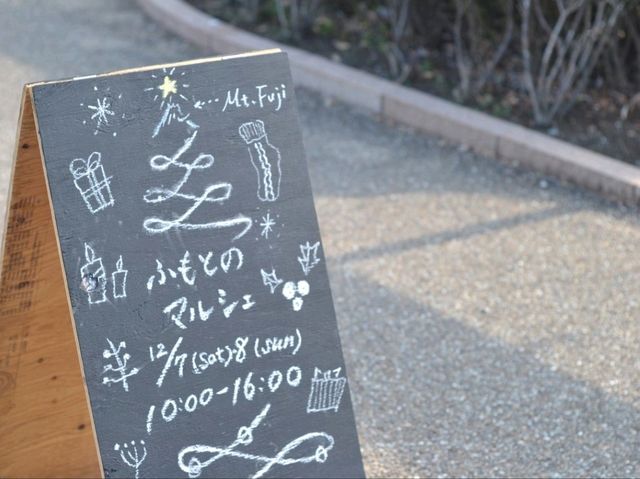 ←… Mt. Fuji
ふもとの
マルシェ
12/7 (sat)・8 (sun)
10:00-16:00